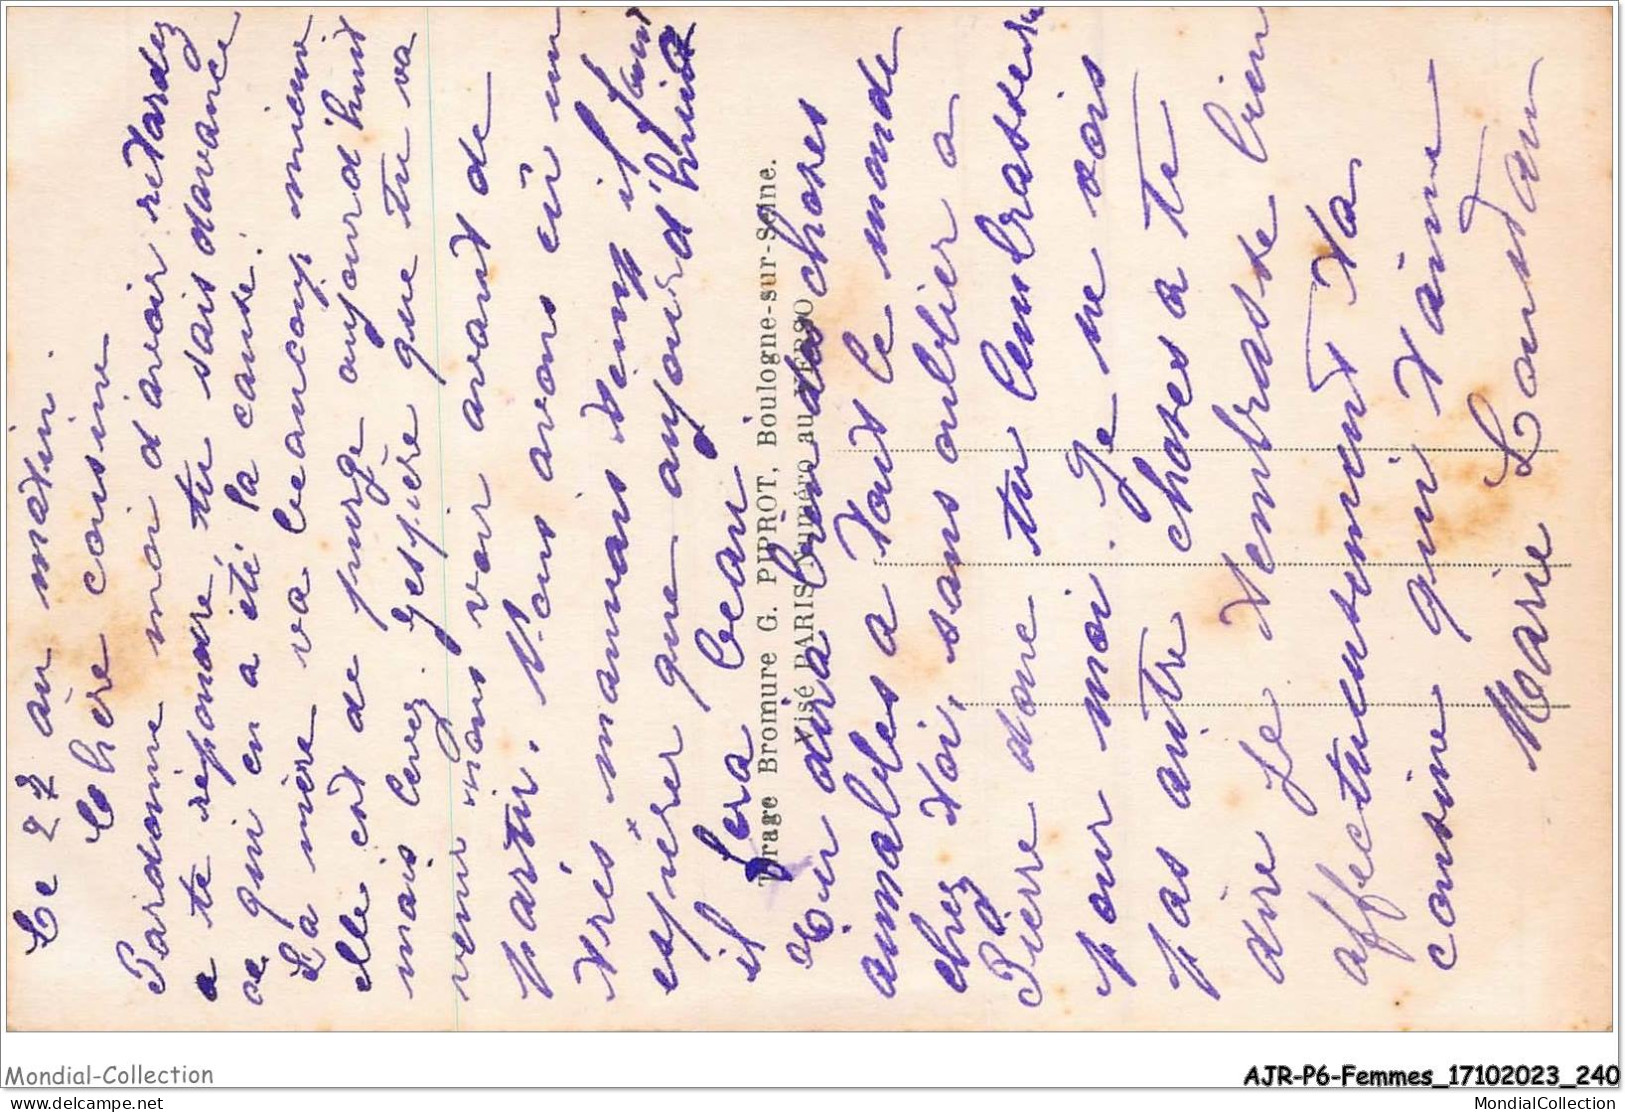 Le 22 au matin.
Chère cousine
Pardonne moi d'avoir retardez
a te reponore tu sais davance
ae qui en a été la cause.
La mère va beaucoup mieux
elle est de purge aujourd'huit
mais levez. J'espère que tu va
venir nous voir avant de
partir. Nous avons eü un
très mauvais temp il faut
espérer que aujourd'huit
il fera beau
Tu dira bien des choses
aimables a tout le monde
chez toi, sans oublier a
Pierre donc tu l'embrassera
pour moi. Je ne vois
pas autre choses a te
dire je t'embrasse bien
affectueusement ta
cousine qui t'aime
Marie
Tirage Bromure G. PIPROT, Boulogne-sur-Seine.
Visé PARIS Numéro au VERSO
Mondial-Collection
AJR-P6-Femmes_17102023_240
www.delcampe.net
MondialCollection